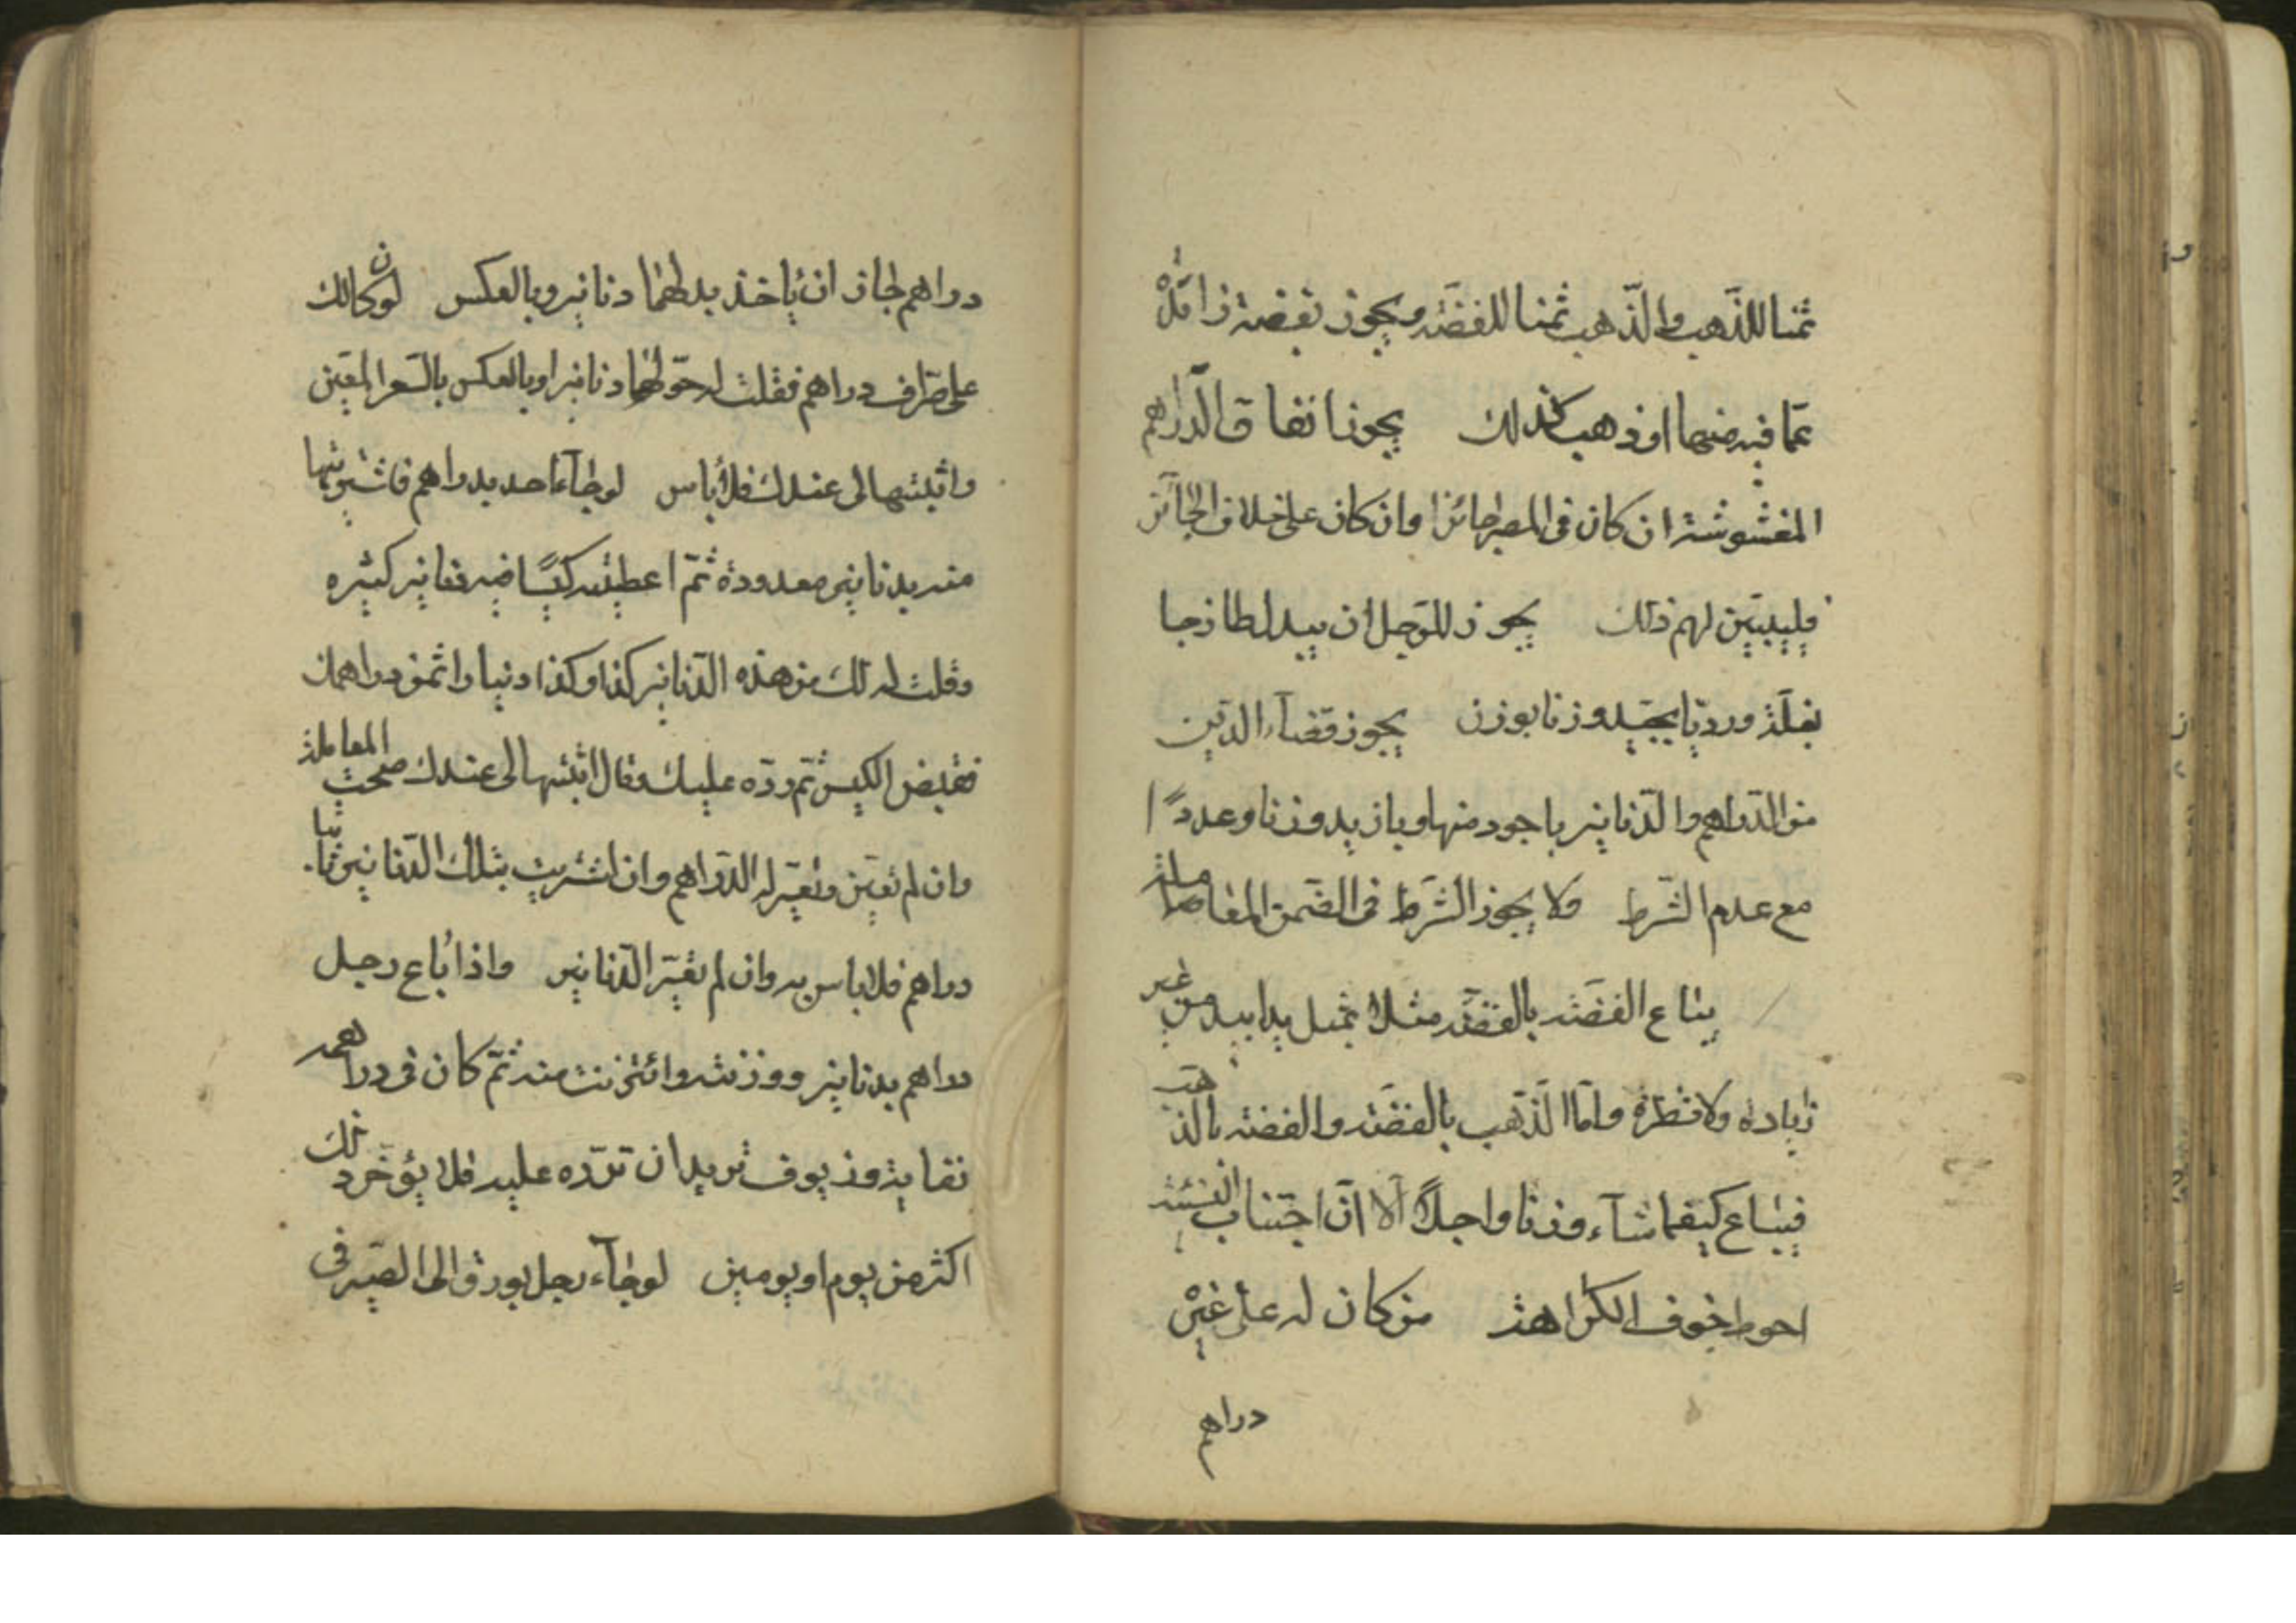 ثمنا للذّهب والذّهب ثمنا للفضّه ويجوز بفضة زائدة
عمّا فيه منها او ذهب كذلك يجوز انفاق الدّراهم
المغشوشة ان كان فى المصر جائزا وان كان على خلاف الجائز
فليبيّن لهم ذلك يجوز للرّجل ان يبدل طازجا
بغلّة ورديّا بجيّد وزنا بوزن يجوز قضاء الدّين
من الدّراهم والدّنانير باجود منها وبازيد وزنا وعددًا
مع عدم الشّرط ولا يجوز الشّرط فى الضّمن المعاملة
يباع الفضّه بالفضّه مثلا بمثل يدا بيد من غير
زيادة ولا نظرة وامّا الذّهب بالفضّه والفضّه بالذّهب
فيباع كيفما شاء وزنا واجلاً الّا انّ اجتناب النسئة
احوط خوف الكراهة من كان له على غيره
دراهم
دراهم جاز ان ياخذ بدلها دنانير وبالعكس لو كان لك
على صرّاف دراهم فقلت له حوّلها دنانير او بالعكس بالسّعر المعيّن
واثبتها لى عندك فلا باس لو جاء احد بدراهم فاشتريتها
منه بدنانير معدودة ثمّ اعطيته كيسًا فيه دنانير كثيره
وقلت له لك من هذه الدّنانير كذا وكذا دنيارا ثمن دراهمك
فقبض الكيس ثمّ ردّه عليك وقال اثبتها لى عندك صحت المعاملة
وان لم تعيّن وتعيّر له الدّراهم وان اشتريت بتلك الدّنانير ثانيا
دراهم فلا باس به وان لم يعيّر الدّنانير واذا باع رجل
دراهم بدنانير ووزنته وانتزنت منه ثمّ كان فى دراهمه
نفاية وزيوف تريد ان تردّه عليه فلا يؤخّر ذلك
اكثر من يوم او يومين لو جاء رجل بورق الى الصّيرفى